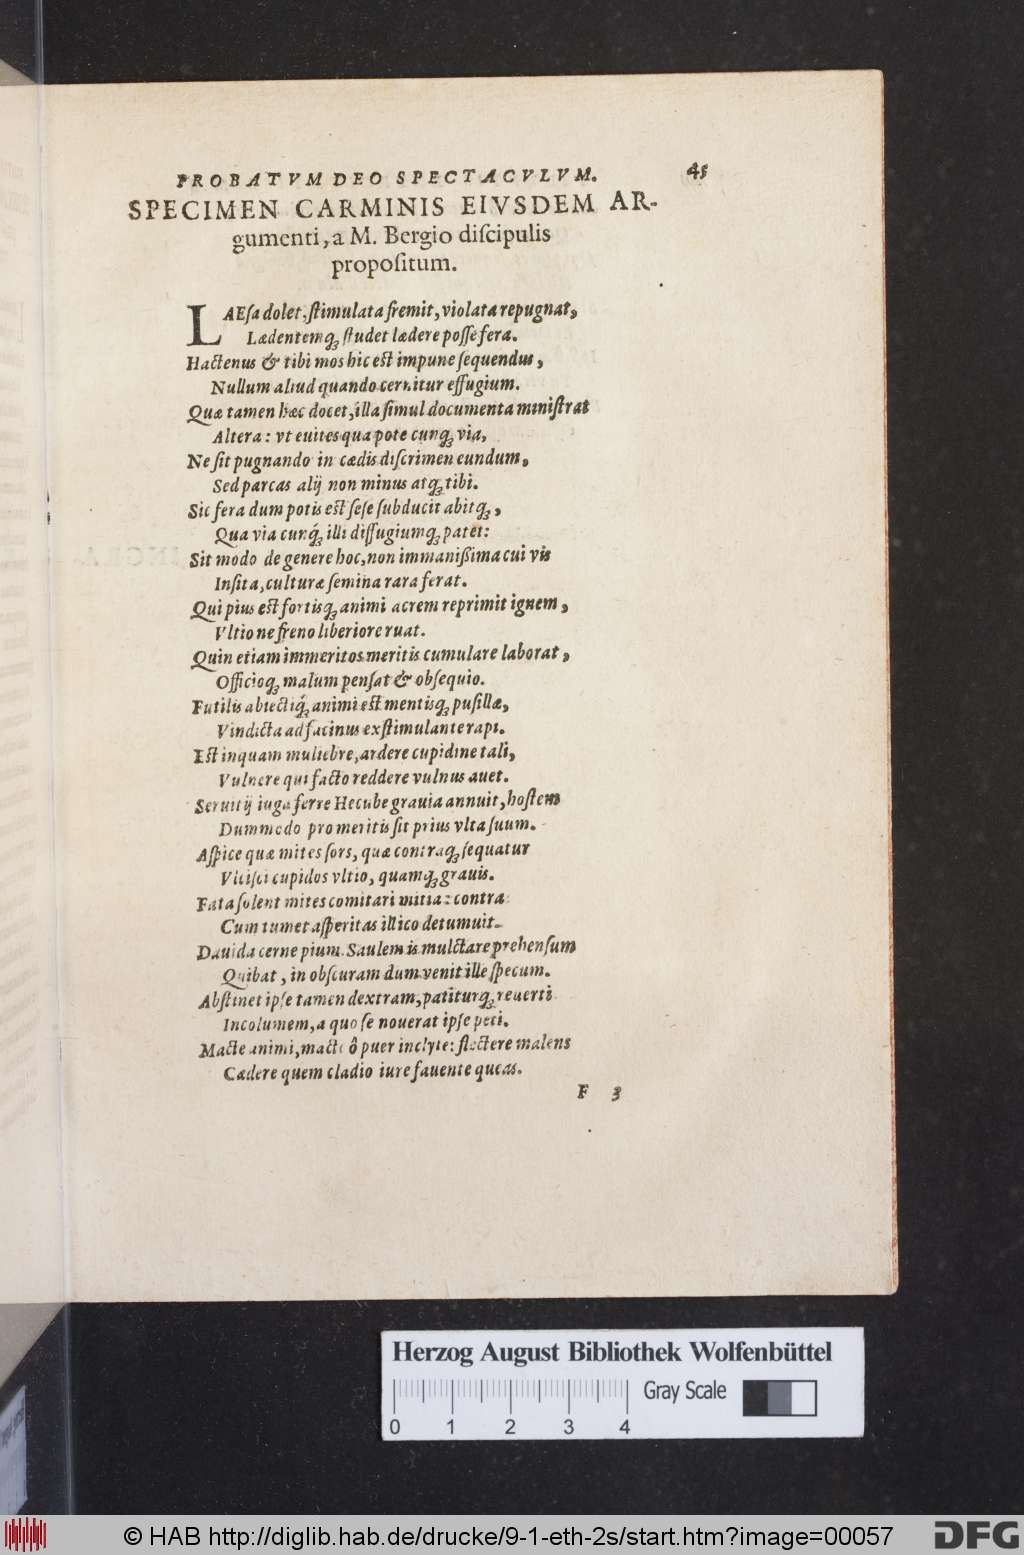 PROBATVM DEO SPECTACVLVM. 45
SPECIMEN CARMINIS EIVSDEM AR-
gumenti, a M. Bergio diſcipulis
propoſitum.
LAEſa dolet, ſtimulata fremit, violata repugnat,
Lædentemq́; ſtudet lædere poſſe fera.
Hactenus & tibi mos hic eſt impune ſequendus,
Nullum aliud quando cernitur effugium.
Quæ tamen hæc docet, illa ſimul documenta miniſtrat
Altera: vt euites qua pote cunq; via,
Ne ſit pugnando in cædis diſcrimen eundum,
Sed parcas alij non minus atq; tibi.
Sic fera dum potis eſt ſeſe ſubducit abitq;,
Qua via cunq́; illi diffugiumq; patet:
Sit modo de genere hoc, non immanißima cui vis
Inſita, culturæ ſemina rara ferat.
Qui pius eſt fortisq; animi acrem reprimit ignem,
Vltio ne freno liberiore ruat.
Quin etiam immeritos meritis cumulare laborat,
Officioq; malum penſat & obſequio.
Futilis abiectiq́; animi eſt mentisq; puſillæ,
Vindicta ad facinus exſtimulante rapi.
Eſt inquam muliebre, ardere cupidine tali,
Vulnere qui facto reddere vulnus auet.
Seruitij iuga ferre Hecube grauia annuit, hoſtem
Dummodo pro meritis ſit prius vlta ſuum.
Aſpice quæ mites ſors, quæ contraq; ſequatur
Vlciſci cupidos vltio, quamq; grauis.
Fata ſolent mites comitari mitia: contra
Cum tumet aſperitas illico detumuit.
Dauida cerne pium. Saulem is mulctare prehenſum
Quibat, in obſcuram dum venit ille ſpecum.
Abſtinet ipſe tamen dextram, patiturq; reuerti
Incolumem, a quo ſe nouerat ipſe peti.
Macte animi, macte ô puer inclyte: flectere malens
Cædere quem cladio iure fauente queas.
F 3
Herzog August Bibliothek Wolfenbüttel
Gray Scale
0 1 2 3 4
© HAB http://diglib.hab.de/drucke/9-1-eth-2s/start.htm?image=00057
DFG